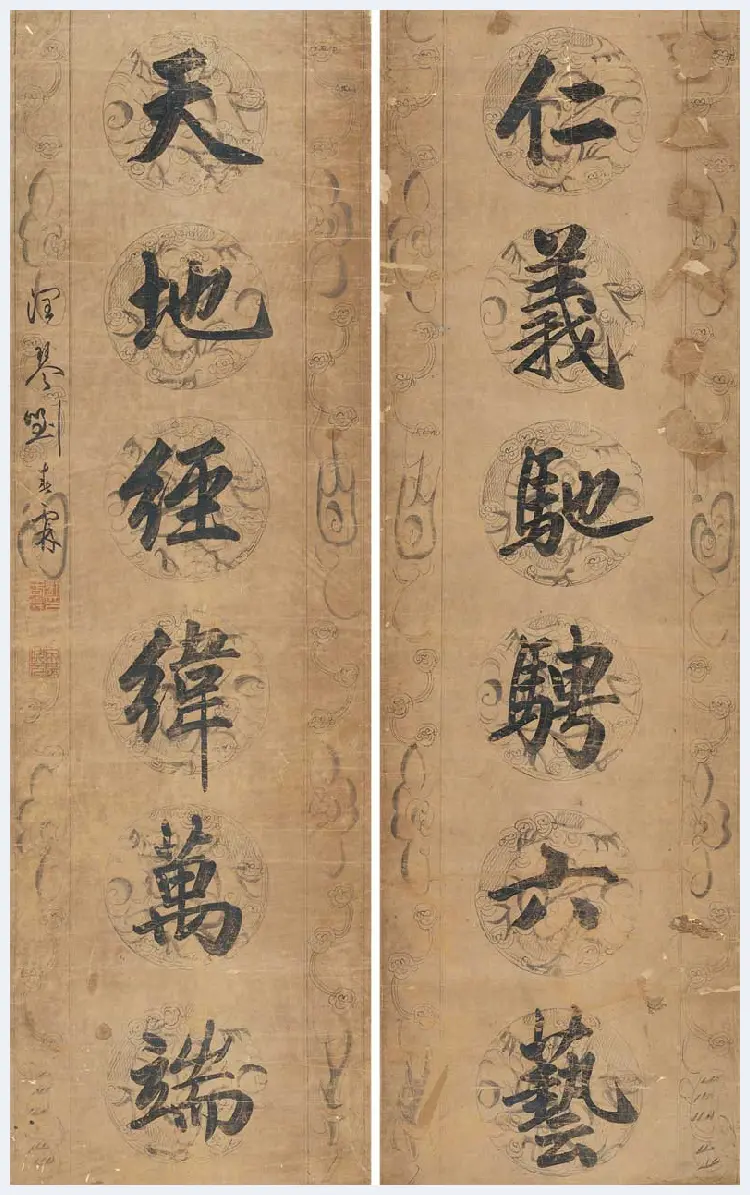 仁義馳騁六藝
天地經緯萬端
潤琴劉春霖